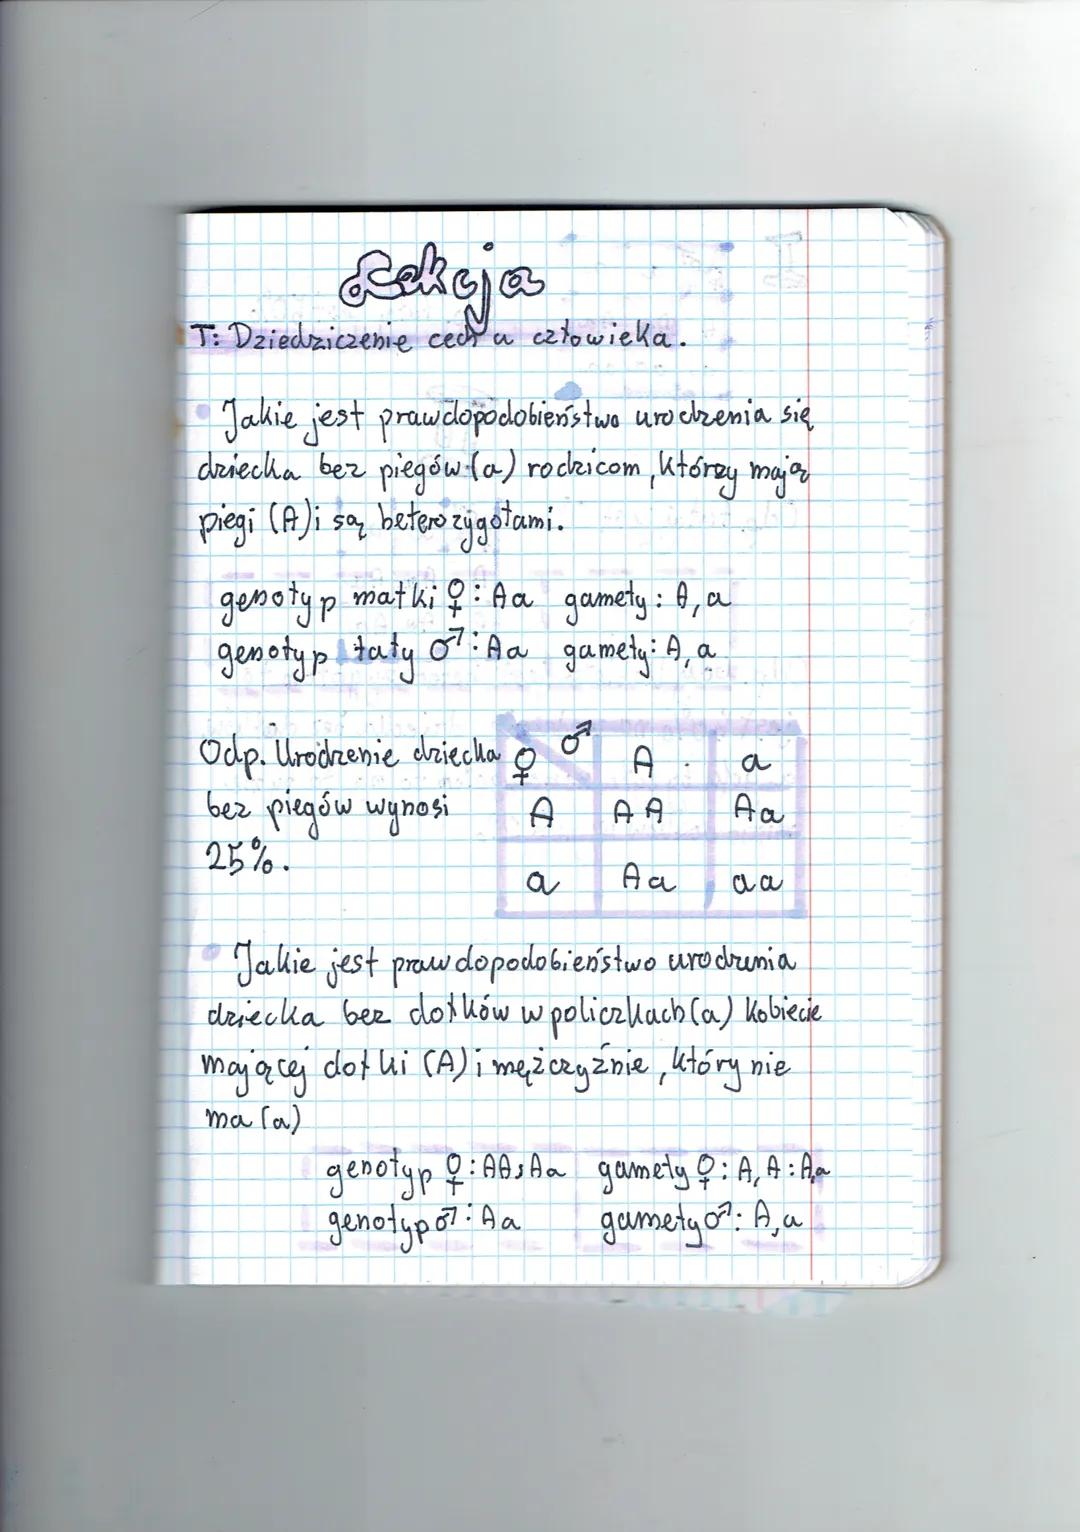 Lekcja
T: Dziedziczenie cech u człowieka.
Jakie jest prawdopodobieństwo urodzenia się
dziecka bez piegów (a) rodzicom, którzy mają
piegi (A) i są heterozygotami.
genotyp matki ♀: Aa gamety: A, a
genotyp taty ♂: Aa gamety: A, a
Odp. Urodzenie dziecka
bez piegów wynosi
25%.
♀ ♂ A a
A AA Aa
a Aa aa
Jakie jest prawdopodobieństwo urodzenia
dziecka bez dołków w policzkach (a) kobiecie
mającej dołki (A) i mężczyźnie, który nie
ma (a)
genotyp ♀: AA; Aa gamety ♀: A, A : A,a
genotyp ♂: Aa gamety ♂: A, a